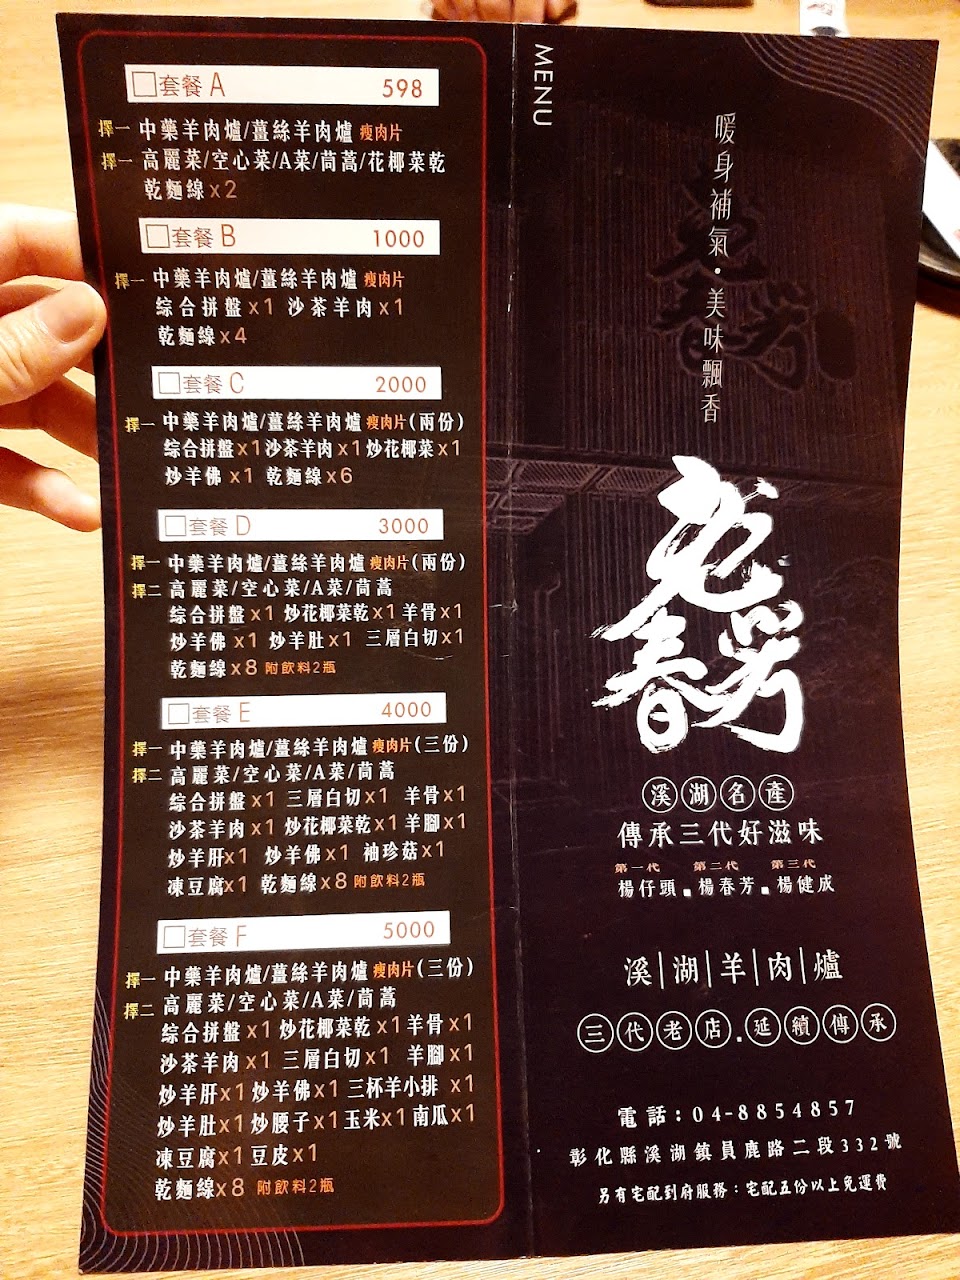 套餐 A 598
擇一 中藥羊肉爐/薑絲羊肉爐 瘦肉片
擇一 高麗菜/空心菜/A菜/茼蒿/花椰菜乾
乾麵線x2
套餐 B 1000
擇一 中藥羊肉爐/薑絲羊肉爐 瘦肉片
綜合拼盤x1 沙茶羊肉x1
乾麵線x4
套餐 C 2000
擇一 中藥羊肉爐/薑絲羊肉爐 瘦肉片(兩份)
綜合拼盤x1 沙茶羊肉x1 炒花椰菜x1
炒羊佛 x1 乾麵線x6
套餐 D 3000
擇一 中藥羊肉爐/薑絲羊肉爐 瘦肉片(兩份)
擇二 高麗菜/空心菜/A菜/茼蒿
綜合拼盤x1 炒花椰菜乾x1 羊骨x1
炒羊佛 x1 炒羊肚x1 三層白切x1
乾麵線x8 附飲料2瓶
套餐 E 4000
擇一 中藥羊肉爐/薑絲羊肉爐 瘦肉片(三份)
擇二 高麗菜/空心菜/A菜/茼蒿
綜合拼盤x1 三層白切x1 羊骨x1
沙茶羊肉x1 炒花椰菜乾x1 羊腳x1
炒羊肝x1 炒羊佛x1 袖珍菇x1
凍豆腐x1 乾麵線x8 附飲料2瓶
套餐 F 5000
擇一 中藥羊肉爐/薑絲羊肉爐 瘦肉片(三份)
擇二 高麗菜/空心菜/A菜/茼蒿
綜合拼盤x1 炒花椰菜乾x1 羊骨x1
沙茶羊肉x1 三層白切x1 羊腳x1
炒羊肝x1 炒羊佛x1 三杯羊小排 x1
炒羊肚x1 炒腰子x1 玉米x1 南瓜x1
凍豆腐x1 豆皮x1
乾麵線x8 附飲料2瓶
MENU
暖身補氣·美味飄香
老
春芳
溪湖名產
傳承三代好滋味
第一代 第二代 第三代
楊仔頭■楊春芳■楊健成
溪|湖|羊|肉|爐
三代老店.延續傳承
電話:04-8854857
彰化縣溪湖鎮員鹿路二段332號
另有宅配到府服務:宅配五份以上免運費